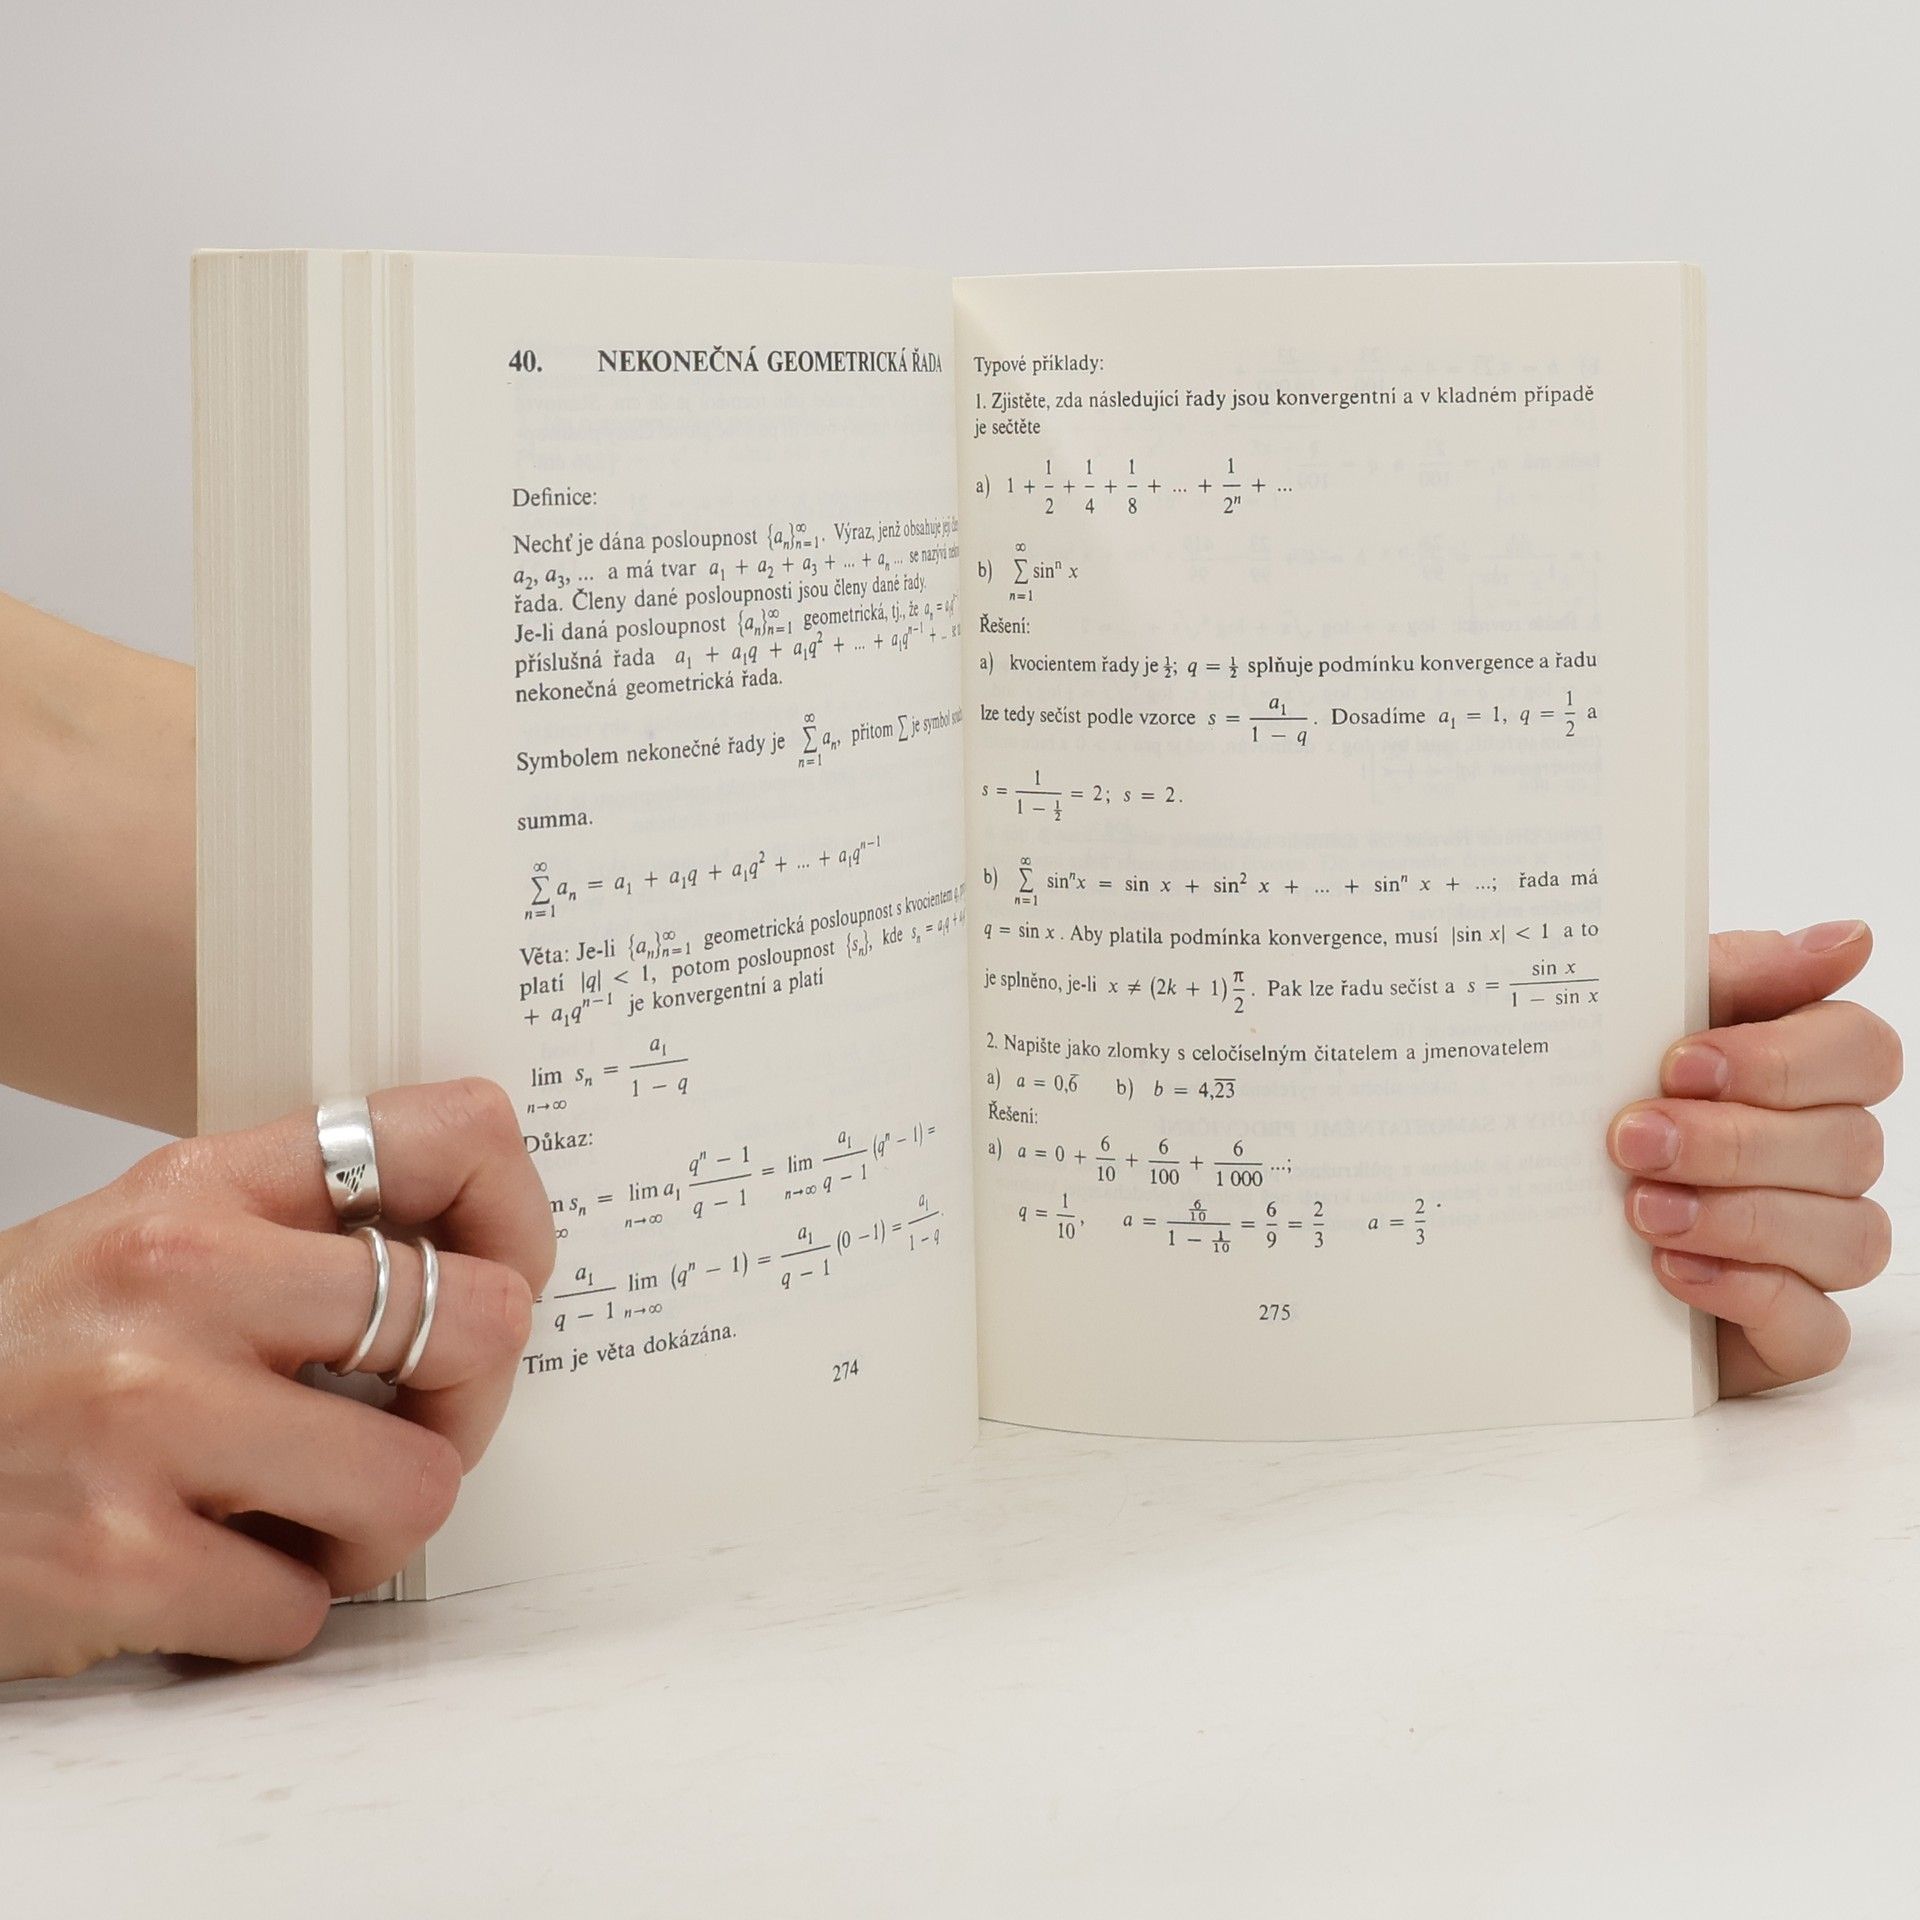 40. NEKONEČNÁ GEOMETRICKÁ ŘADA
Definice:
Nechť je dána posloupnost {aₙ}∞ₙ₌₁. Výraz, jenž obsahuje její
a₂, a₃, ... a má tvar a₁ + a₂ + a₃ + ... + aₙ ... se nazývá
řada. Členy dané posloupnosti jsou členy dané řady.
Je-li daná posloupnost {aₙ}∞ₙ₌₁ geometrická, tj., že aₙ =
příslušná řada a₁ + a₁q + a₁q² + ... + a₁qⁿ⁻¹ + ...
nekonečná geometrická řada.
Symbolem nekonečné řady je ∞∑ₙ₌₁ aₙ, přitom ∑ je symbol
summa.
∞∑ₙ₌₁ aₙ = a₁ + a₁q + a₁q² + ... + a₁qⁿ⁻¹
Věta: Je-li {aₙ}∞ₙ₌₁ geometrická posloupnost s kvocientem q,
platí |q| < 1, potom posloupnost {sₙ}, kde sₙ = a₁q +
+ a₁qⁿ⁻¹ je konvergentní a platí
lim n→∞ sₙ = a₁ / (1 − q)
Důkaz:
sₙ = lim n→∞ a₁ (qⁿ − 1)/(q − 1) = lim n→∞ a₁/(q − 1) (qⁿ − 1) =
= a₁/(q − 1) lim n→∞ (qⁿ − 1) = a₁/(q − 1) (0 − 1) = a₁/(1 − q).
Tím je věta dokázána.
274
Typové příklady:
1. Zjistěte, zda následující řady jsou konvergentní a v kladném případě
je sečtěte
a) 1 + 1/2 + 1/4 + 1/8 + ... + 1/2ⁿ + ...
b) ∞∑ₙ₌₁ sinⁿ x
Řešení:
a) kvocientem řady je ½; q = ½ splňuje podmínku konvergence a řadu
lze tedy sečíst podle vzorce s = a₁/(1 − q). Dosadíme a₁ = 1, q = 1/2 a
s = 1/(1 − ½) = 2; s = 2.
b) ∞∑ₙ₌₁ sinⁿx = sin x + sin² x + ... + sinⁿ x + ...; řada má
q = sin x. Aby platila podmínka konvergence, musí |sin x| < 1 a to
je splněno, je-li x ≠ (2k + 1) π/2. Pak lze řadu sečíst a s = sin x/(1 − sin x)
2. Napište jako zlomky s celočíselným čitatelem a jmenovatelem
a) a = 0,6̅ b) b = 4,2̅3̅
Řešení:
a) a = 0 + 6/10 + 6/100 + 6/1 000 ...;
q = 1/10, a = (6/10)/(1 − 1/10) = 6/9 = 2/3 a = 2/3.
275